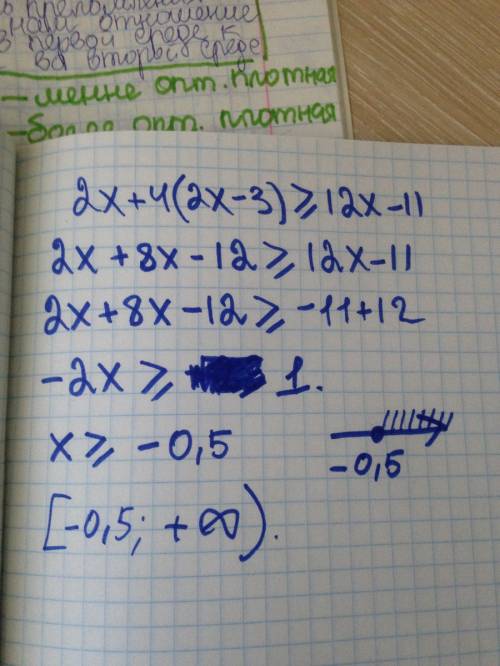 нами отношение
в первой среде к
во второй среде
- менне опт. плотная
- более опт. плотная
2x+4(2x-3)≥12x-11
2x+8x-12≥12x-11
2x+8x-12≥-11+12
-2x≥ 1.
x≥-0,5
-0,5
[-0,5; +∞).